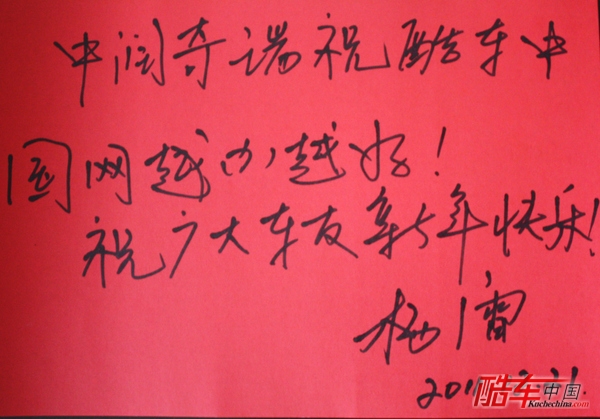 中润奇瑞祝酷车中
国网越办越好！
祝广大车友新年快乐！
杨
201
酷车中国
Kuchechina.com